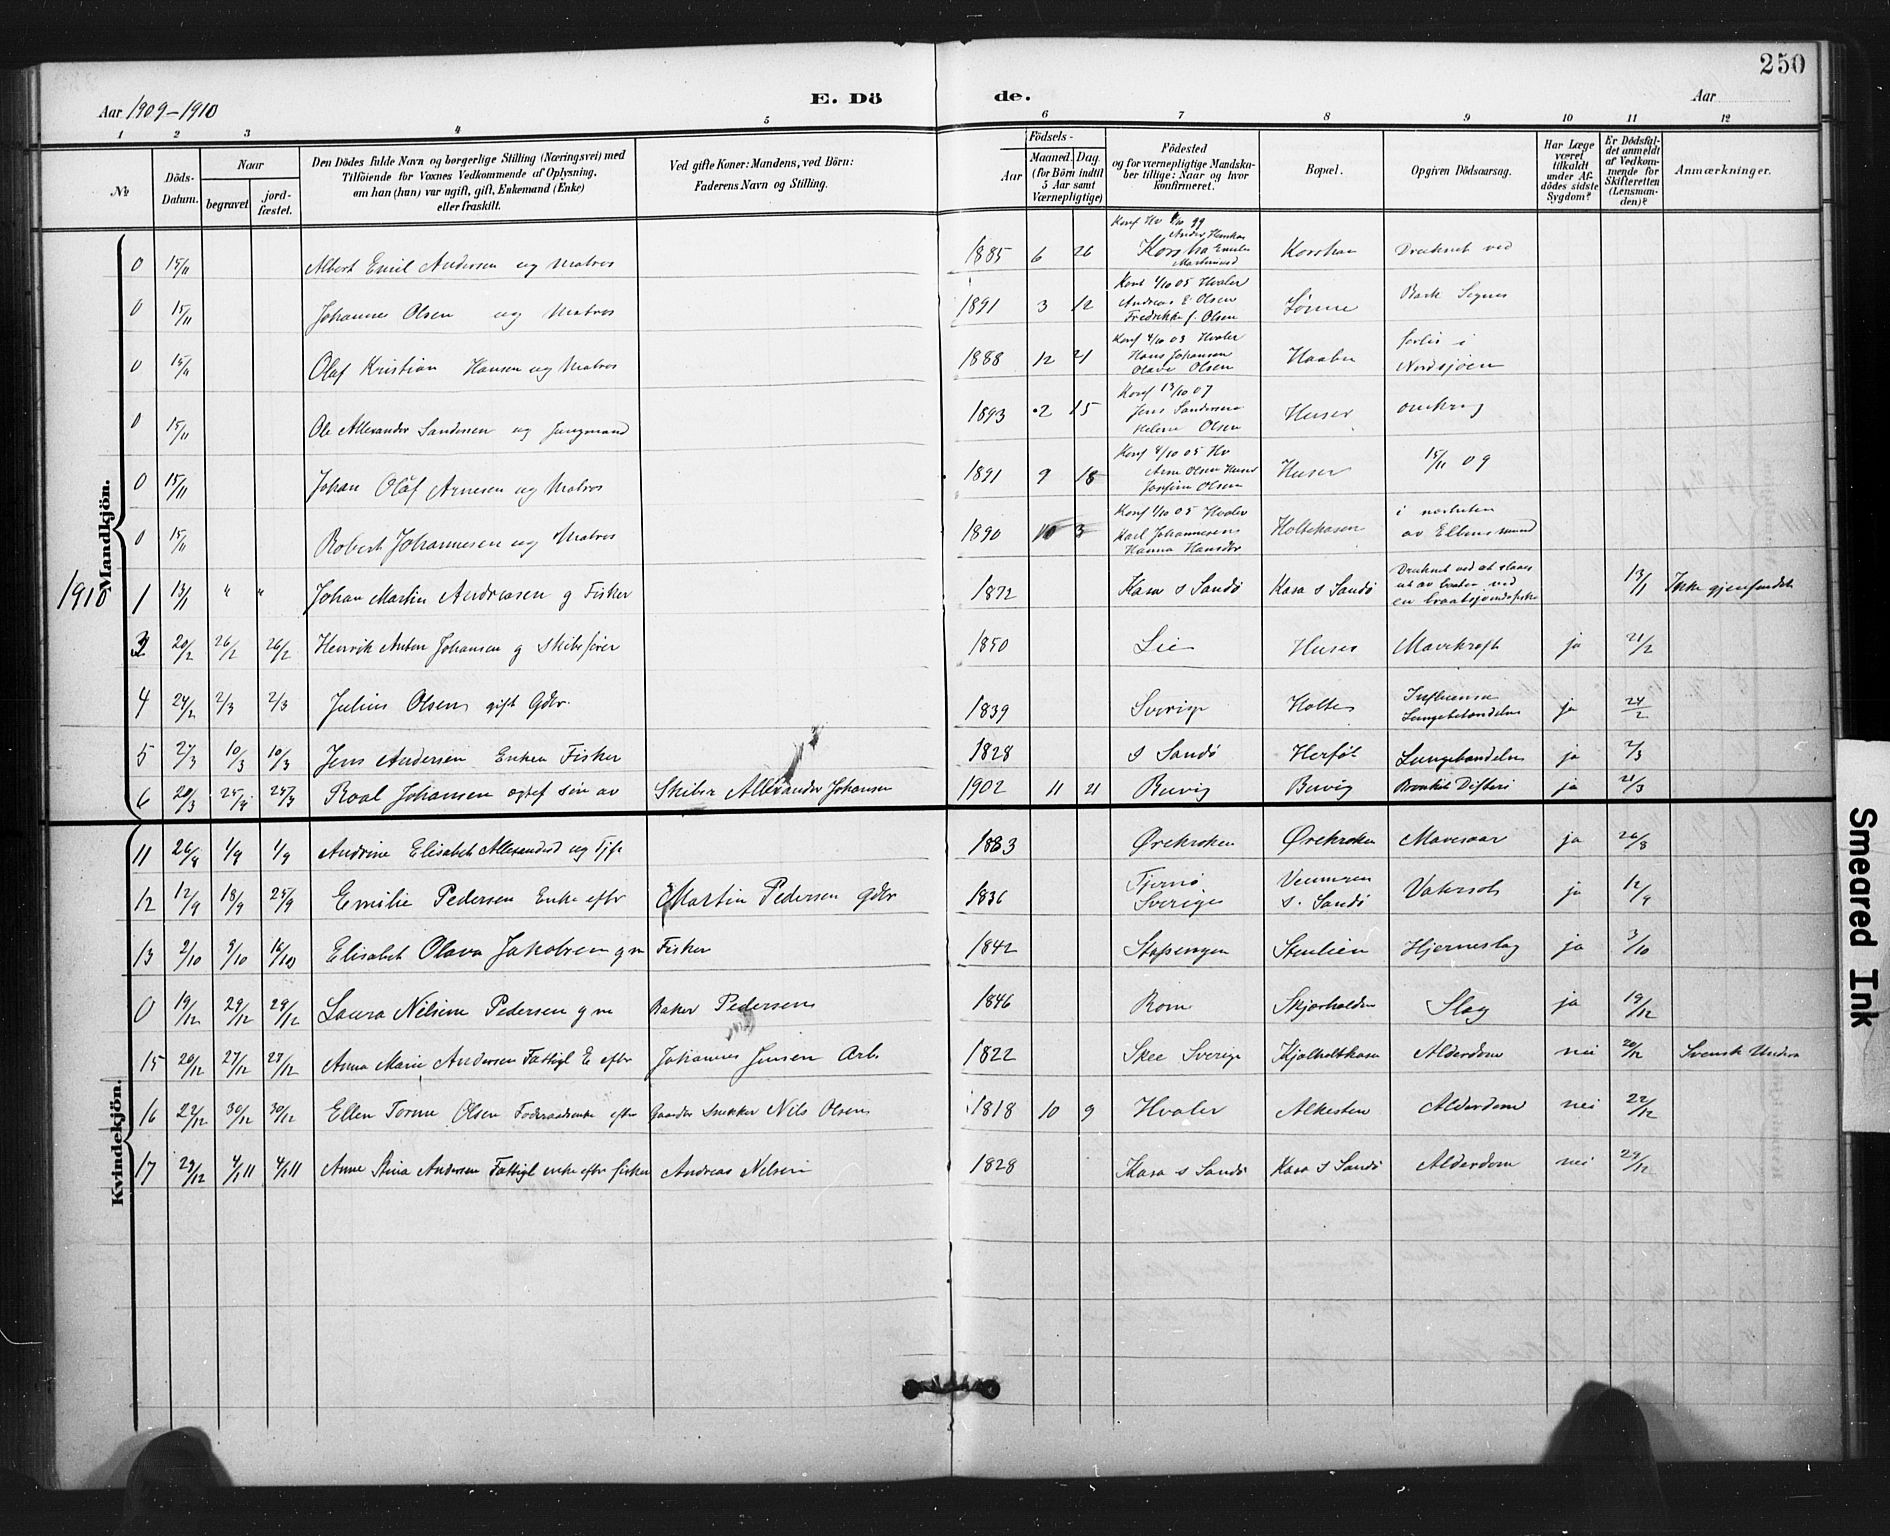 250
Aar 1909-1910
E. Dö de.
Aar
1 2 3 4 5 6 7 8 9 10 11 12
No
Döds-Datum.
Naar
begravet
jordfæstet.
Den Dödes fulde Navn og borgerlige Stilling (Næringsvei) med
Tilföiende for Voxnes Vedkommende af Oplysning,
om han (hun) var ugift, gift, Enkemand (Enke)
eller fraskilt.
Ved gifte Koner: Mandens, ved Börn:
Faderens Navn og Stilling.
Födsels-
Aar
Maaned. Dag.
(for Börn indtil
5 Aar samt
Værnepligtige)
Födested
og for værnepligtige Mandskaber tillige: Naar og hvor
konfirmeret.
Bopæl.
Opgiven Dödsaarsag.
Har Læge
været
tilkaldt
under Afdödes sidste
Sygdom?
Er Dödsfaldet anmeldt
af Vedkommende for
Skifteretten
(Lensmanden)?
Anmærkninger.
Mandkjön.
0 15/11 Albert Emil Andersen ug Matros 1885 6 26 Korshavn Druknet ved
0 15/11 Johannes Olsen ug Matros 1891 3 12 Konf 1/10 05 Hvaler Andreas E Olsen Fredrikke J. Olsen Bark Signes
0 15/11 Olaf Kristian Hansen ug Matros 1888 12 21 Konf 4/10 03 Hvaler Hans Johansen Olava Olsen forlis i Nordsjøen
0 15/11 Ole Allexander Sandersen ug Jungmand 1893 2 15 Konf 13/10 07 Jens Sandersen Helene Olsen Huser omkring
0 15/11 Johan Olaf Arnesen ug Matros 1891 9 18 Arne Olsen Huser Josefine Olsen Huser 15/11 09
0 15/11 Robert Johannesen ug Matros 1890 10 3 Konf 1/10 05 Hvaler Karl Johannesen Hanna Hansdtr Holtekasen i nærheten av Elbens
1910
1 13/1 " " Johan Martin Andreasen g Fisker 1872 Kasa s Sandø Kasa s Sandø Druknet ved at slaaes ut av baaten ved 13/1 Ikke gjenfundet
20/2 26/2 26/2 Henrik Anton Johansen g Skibsfører 1850 Lie Huser Mavekræft ja 21/2
4 24/2 2/3 2/3 Julius Olsen gift Gdbr. 1839 Sverige Holte Influensa Lungebetændelse ja 24/2
5 2/3 10/3 10/3 Jens Andersen Enkem Fisker 1828 s Sandø Herføl Lungebetændelse ja 7/3
6 20/3 Roal Johansen egtef søn av Skibsr Allexander Johansen 1902 11 21 Buvig Buvig Bronkit Difteri ja 21/3
Kvindekjön.
11 26/8 1/9 1/9 Andrine Elisabet Allexandersd ug Tj.p. 1883 Ørekroken Ørekroken Mavesaar ja 26/8
12 12/9 18/9 25/9 Emilie Pedersen Enke efter Martin Pedersen gdbr 1836 Tjernø Sverige s. Sandø Vatersot ja 12/9
13 2/10 9/10 16/10 Elisabet Olava Jakobsen g m Fisker 1842 Stenlien Hjerneslag ja 3/10
0 19/12 29/12 29/12 Laura Nilsine Pedersen g m Baker Pedersen 1846 Rom Skjærhalden Slag ja 19/12
15 20/12 27/12 27/12 Anna Marie Andersen Fattigl E efter Johannes Jensen Arb. 1822 Skee Sverige Kjølholtkasa Alderdom nei 20/12 Svensk Unders
16 22/12 30/12 30/12 Ellen Torine Olsen Føderaadsenke efter Gaardbr Snekker Nils Olsen 1818 10 9 Hvaler Alkesten Alderdom nei 22/12
17 29/12 4/1 11 4/1 11 Anne Stina Andersen Fattigl enke efter fisker Andreas Nilsen 1828 Kasa s Sandø Kasa s Sandø Alderdom nei 29/12
Smeared Ink